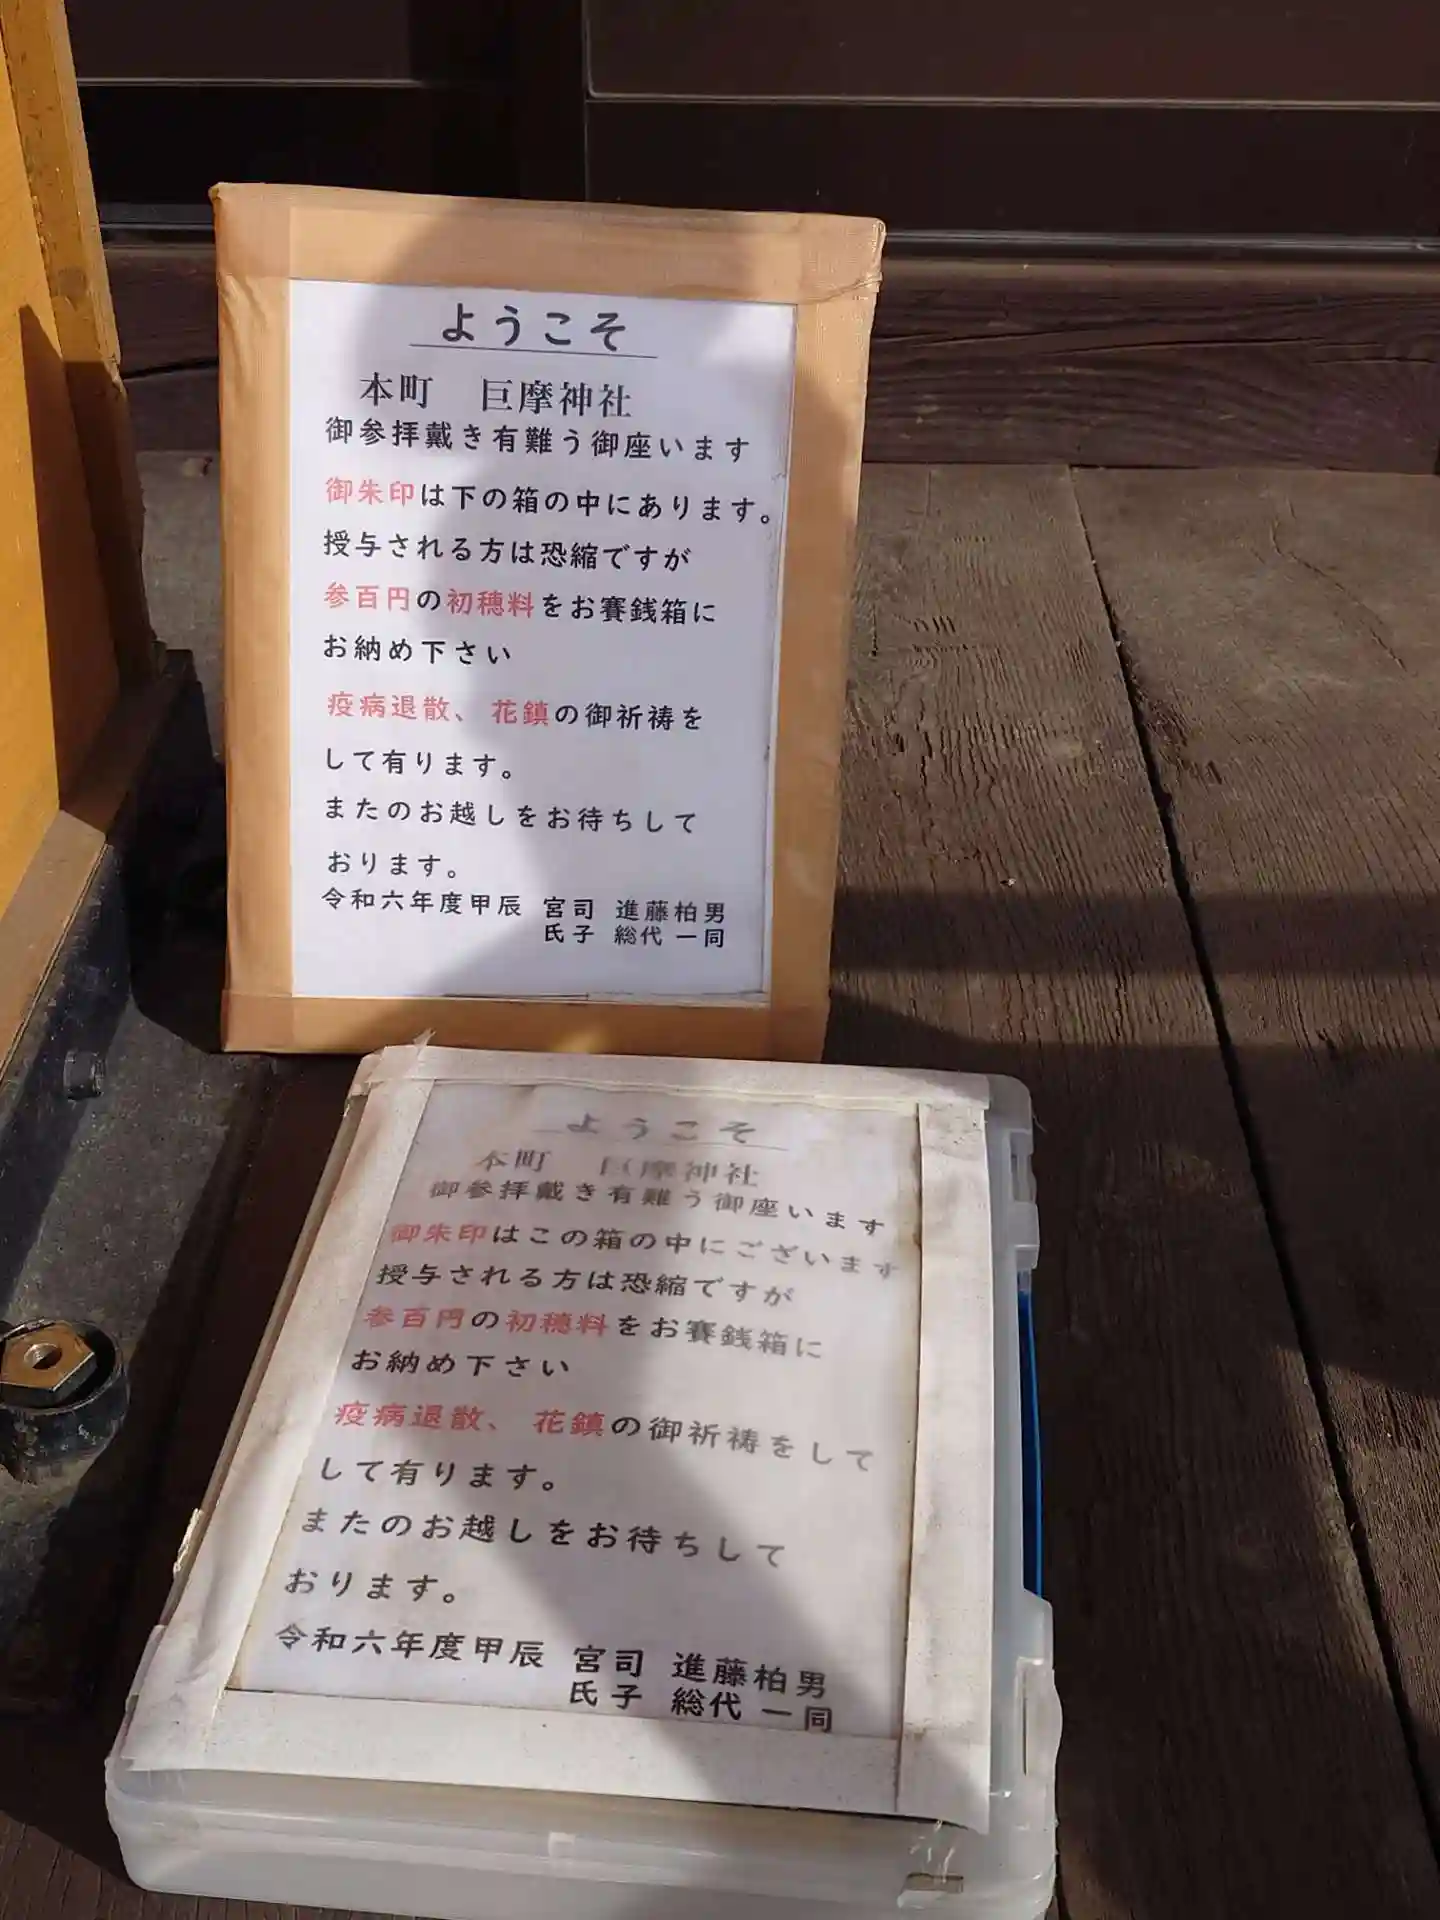 ようこそ
本町　巨摩神社
御参拝戴き有難う御座います
御朱印は下の箱の中にあります。
授与される方は恐縮ですが
参百円の初穂料をお賽銭箱に
お納め下さい
疫病退散、花鎮の御祈祷を
して有ります。
またのお越しをお待ちして
おります。
令和六年度甲辰　宮司　進藤柏男
氏子　総代　一同
ようこそ
本町　巨摩神社
御参拝戴き有難う御座います
御朱印はこの箱の中にございます
授与される方は恐縮ですが
参百円の初穂料をお賽銭箱に
お納め下さい
疫病退散、花鎮の御祈祷をして
して有ります。
またのお越しをお待ちして
おります。
令和六年度甲辰　宮司　進藤柏男
氏子　総代　一同